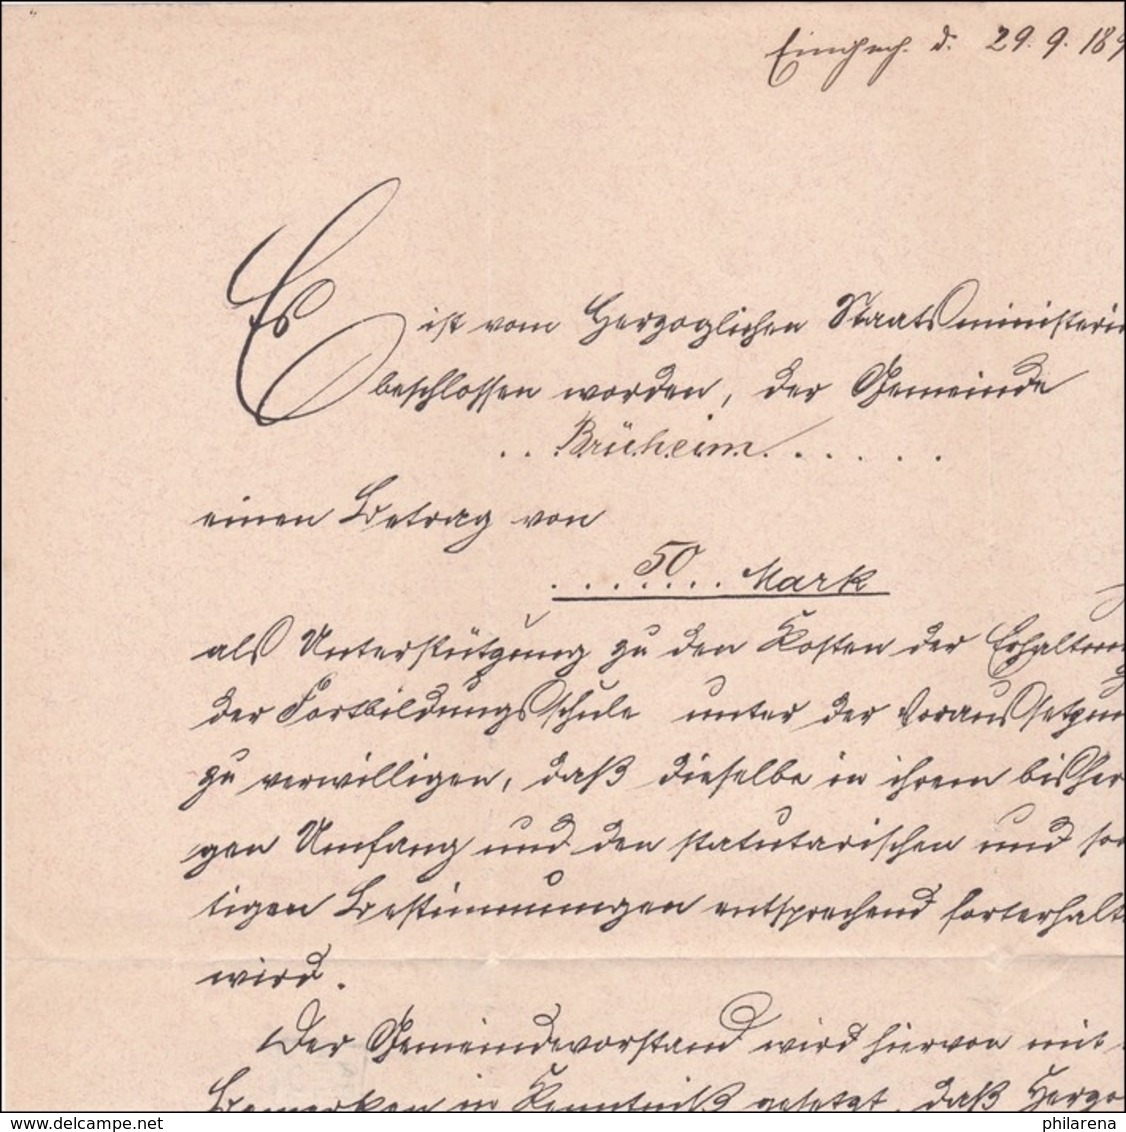 Eingeg. d. 29. 9. 189
Es ist vom Herzoglichen Staatsministeriu
beschlossen worden, der Gemeinde
. . Brüheim . . . . . .
einen Betrag von
. . . 50 . . . Mark
als Unterstützung zu den Kosten der Erhaltung
der Fortbildungsschule unter der Voraussetzun
zu verwilligen, daß dieselbe in ihrem bisheri
gen Umfang und den statutarischen und son
tigen Bestimmungen entsprechend forterhalte
wird.
Der Gemeindevorstand wird hiervon mit
Bemerken in Kenntniß gesetzt, daß Herzo
www.delcampe.net
philarena